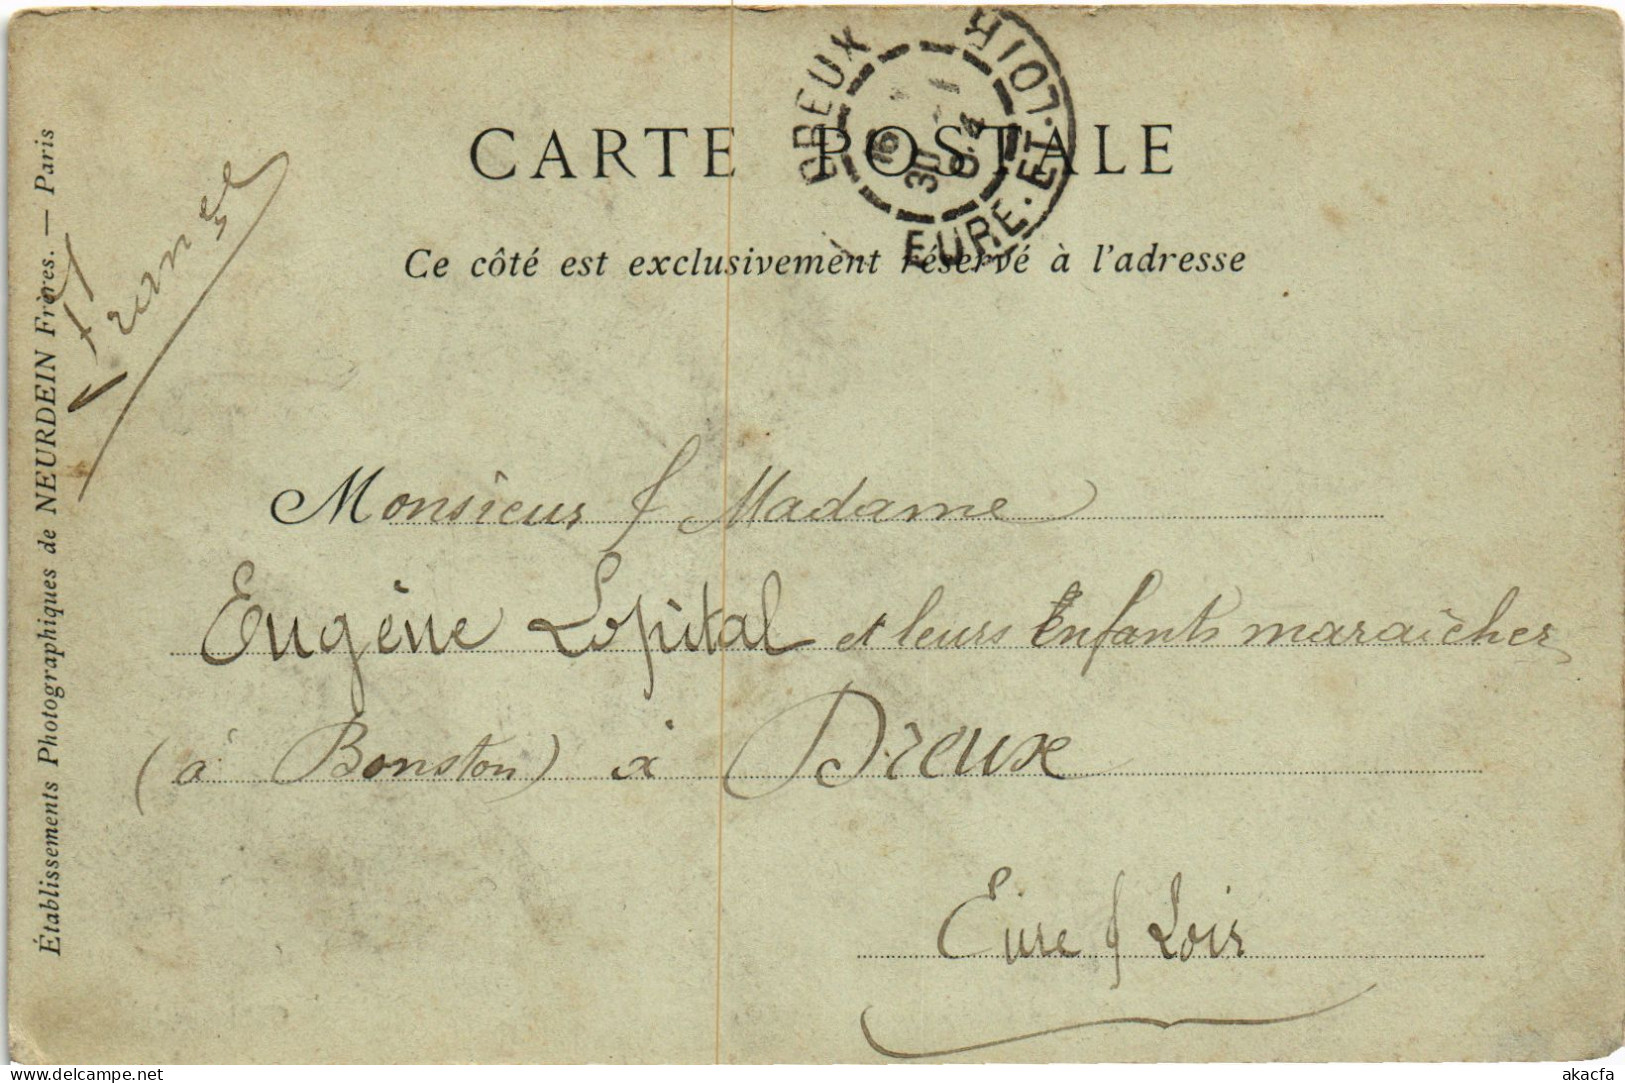 CARTE POSTALE
Ce côté est exclusivement réservé à l'adresse
DREUX
EURE-ET-LOIR
30
04
Établissements Photographiques de NEURDEIN Frères. — Paris
Monsieur & Madame
Eugène Lopital et leurs Enfants maraîcher
(à Bonston) à Dreux
Eure & Loir
delcampe.net
akacfa